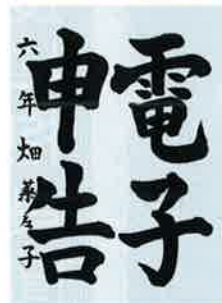 電子
申告
六年畑菜々子